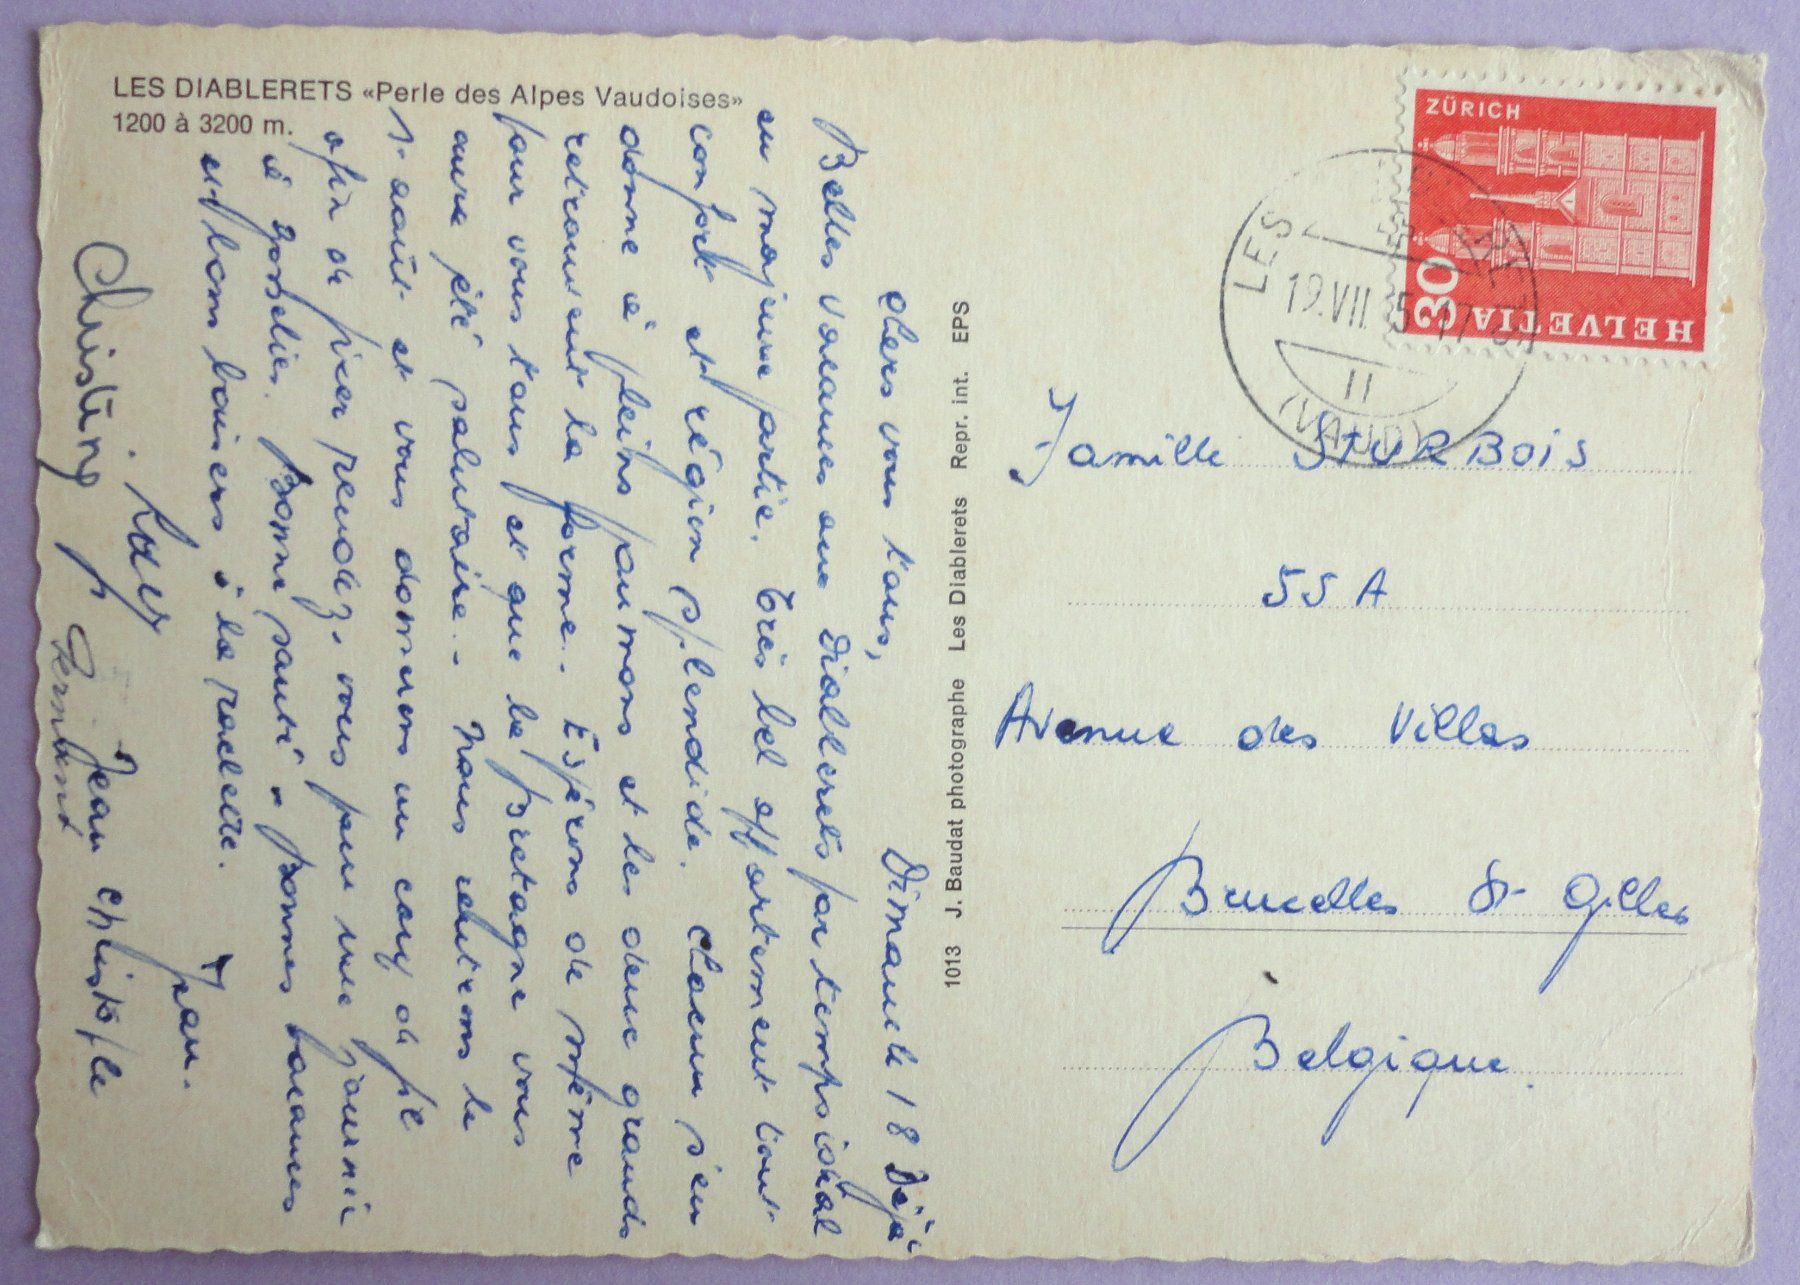 LES DIABLERETS «Perle des Alpes Vaudoises»
1200 à 3200 m.
Dimanche 18 Déjà!
Chers vous tous,
Belles vacances aux Diablerets par temps idéal
en majeure partie. Très bel appartement tout
confort et région splendide. Chacun s'en
donne à pleins poumons et les deux grands
retrouvent la forme.. Espérons de même
pour vous tous et que la Bretagne vous
aura été salutaire.. Nous rentrons le
1r août et vous donnerons un coup de fil
afin de fixer rendez-vous pour une journée
à Gosselies. Bonne santé - Bonnes vacances
et bons baisers à la raclette. Jean.
Christine
Jean Christophe
1013 J. Baudat photographe Les Diablerets Repr. int. EPS
ZÜRICH
HELVETIA 30
LES
19.VII
11
(VAUD)
Famille STURBOIS
55 A
Avenue des Villas
Bruxelles St Gilles
Belgique.